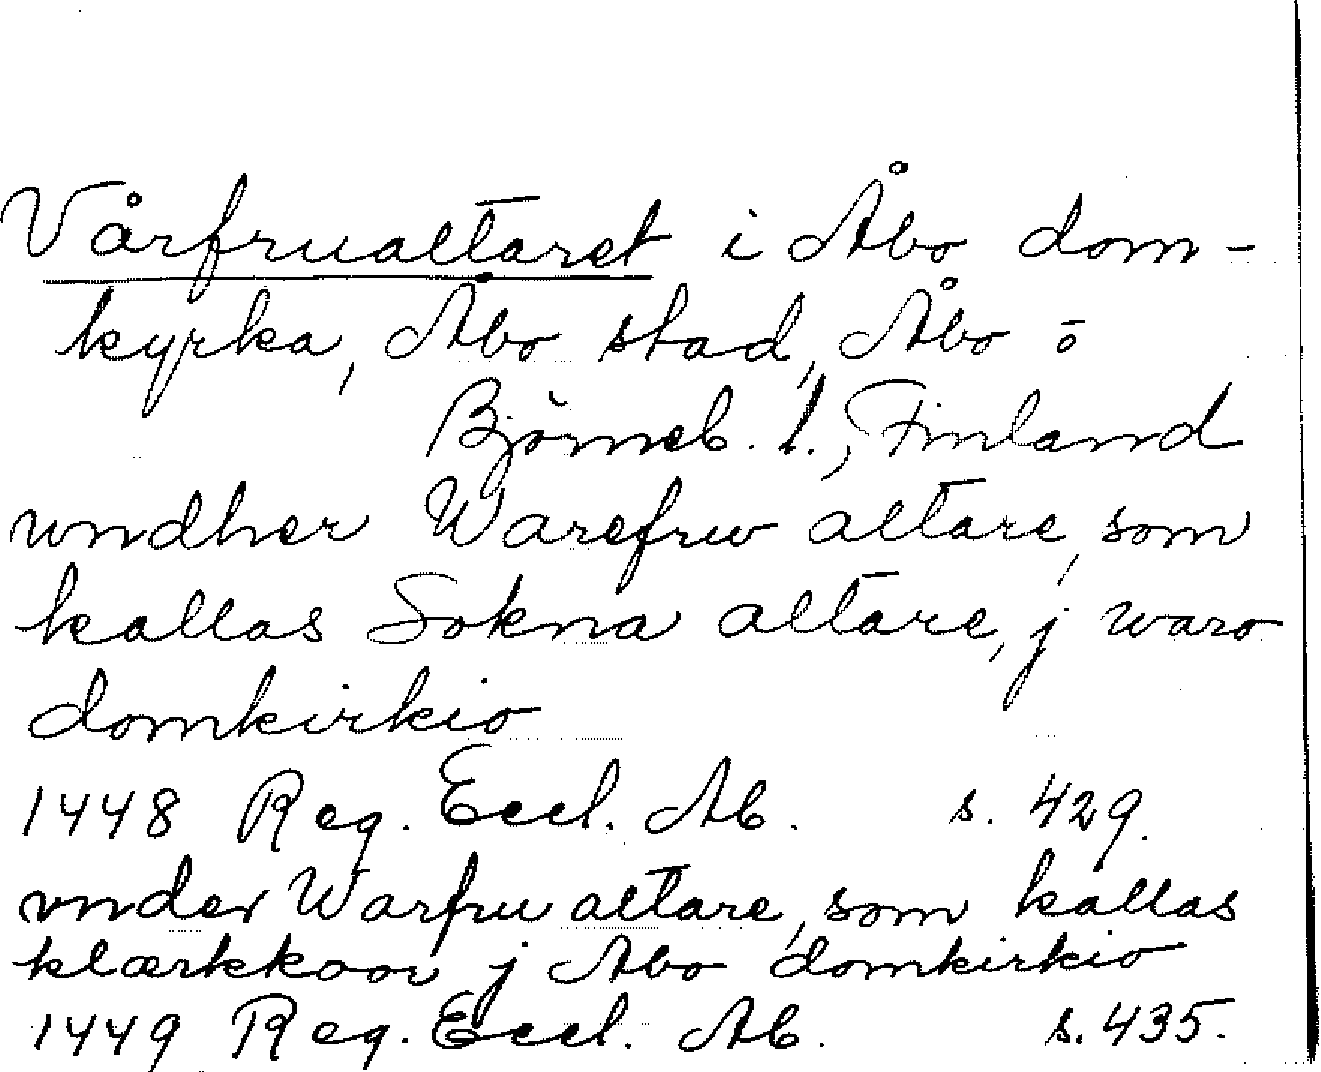 Vårfrualtaret i Åbo dom-
kyrka, Åbo stad, Åbo o
Björneb. l., Finland
wndher Warefrw altare, som
kallas Sokna altare, j waro
domkirkio
1448 Reg. Eccl. Ab. s. 429.
vnder Warfru altare, som kallas
klærkkoor j Abo domkirkio
1449 Reg. Eccl. Ab. s. 435.